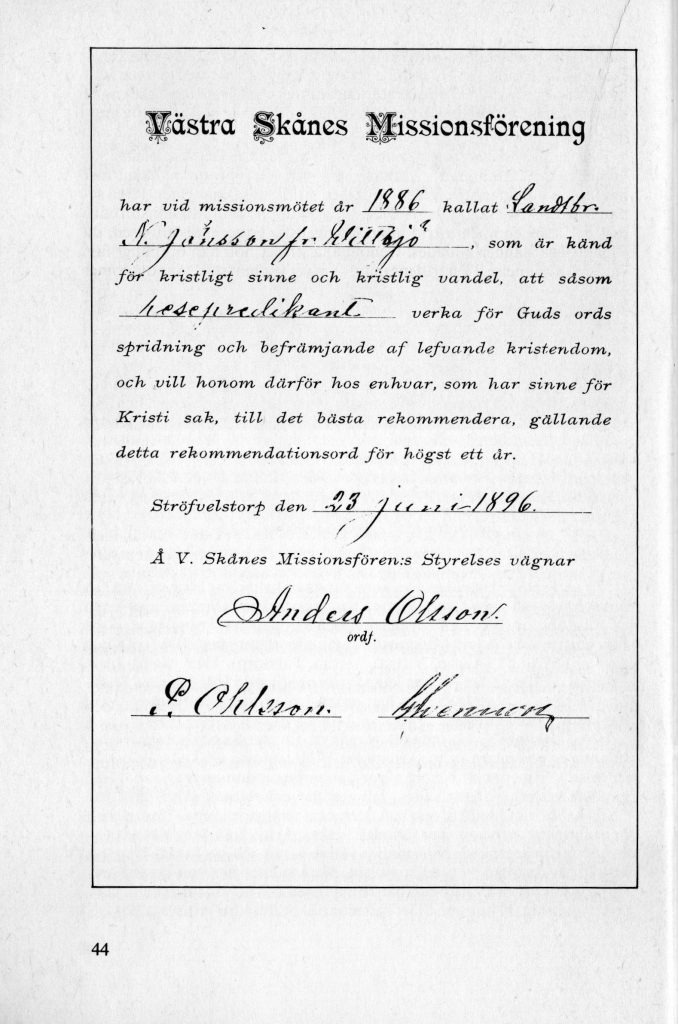 Västra Skånes Missionsförening
har vid missionsmötet år 1886 kallat Landtbr.
N. Jönsson fr. Willsjö, som är känd
för kristligt sinne och kristlig vandel, att såsom
resepredikant verka för Guds ords
spridning och befrämjande af lefvande kristendom,
och vill honom därför hos enhvar, som har sinne för
Kristi sak, till det bästa rekommendera, gällande
detta rekommendationsord för högst ett år.
Ströfvelstorp den 23 juni 1896.
Å V. Skånes Missionsfören:s Styrelses vägnar
Anders Olsson.
ordf.
P. Ohlsson.
44